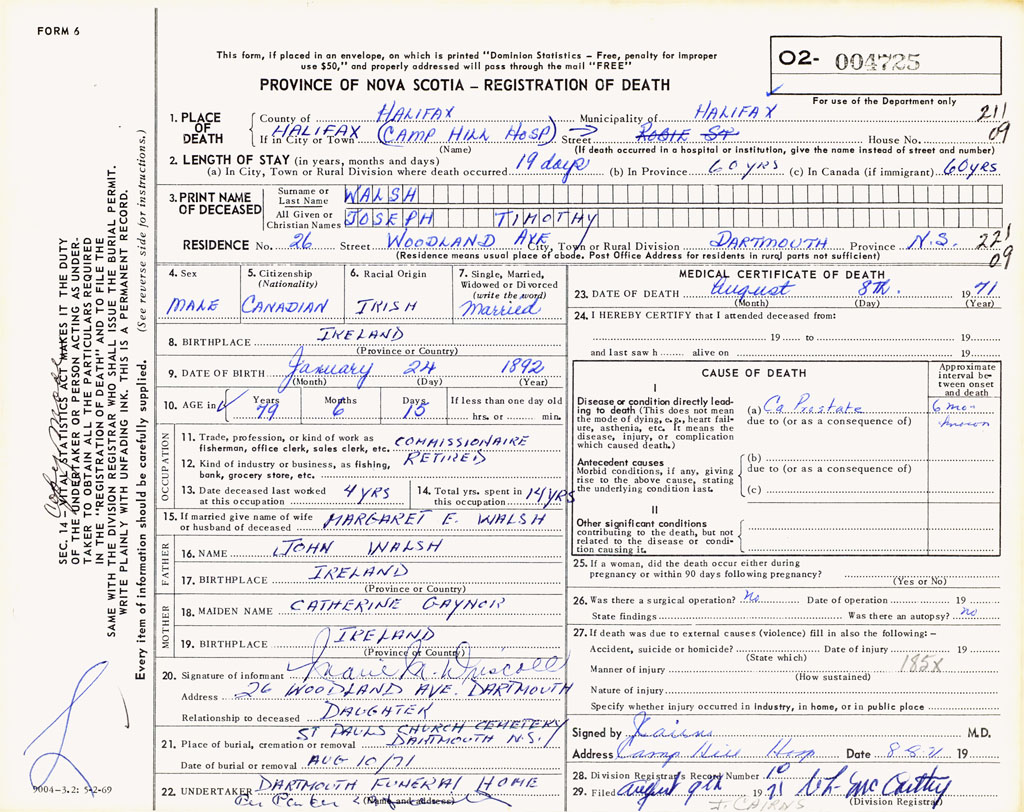 FORM 6
This form, if placed in an envelope, on which is printed "Dominion Statistics – Free, penalty for improper
use $50," and properly addressed will pass through the mail "FREE"
PROVINCE OF NOVA SCOTIA – REGISTRATION OF DEATH
O2- 004725
For use of the Department only
1. PLACE OF DEATH
County of HALIFAX Municipality of HALIFAX 211
If in City or Town HALIFAX (CAMP HILL HOSP) → Street ROBIE ST House No. 09
(Name) (If death occurred in a hospital or institution, give the name instead of street and number)
2. LENGTH OF STAY (in years, months and days)
(a) In City, Town or Rural Division where death occurred 19 days (b) In Province 60 yrs (c) In Canada (if immigrant) 60 yrs
3. PRINT NAME OF DECEASED
Surname or Last Name WALSH
All Given or Christian Names JOSEPH TIMOTHY
RESIDENCE No. 26 Street WOODLAND AVE City, Town or Rural Division DARTMOUTH Province N.S. 221
(Residence means usual place of abode. Post Office Address for residents in rural parts not sufficient) 09
4. Sex MALE
5. Citizenship (Nationality) CANADIAN
6. Racial Origin IRISH
7. Single, Married, Widowed or Divorced (write the word) Married
8. BIRTHPLACE IRELAND
(Province or Country)
9. DATE OF BIRTH January 24 1892
(Month) (Day) (Year)
10. AGE in Years 79 Months 6 Days 15 If less than one day old
hrs. or min.
OCCUPATION
11. Trade, profession, or kind of work as fisherman, office clerk, sales clerk, etc. COMMISSIONAIRE
12. Kind of industry or business, as fishing, bank, grocery store, etc. RETIRED
13. Date deceased last worked at this occupation 4 YRS
14. Total yrs. spent in this occupation 14 YRS
15. If married give name of wife or husband of deceased MARGARET E. WALSH
FATHER
16. NAME JOHN WALSH
17. BIRTHPLACE IRELAND
(Province or Country)
MOTHER
18. MAIDEN NAME CATHERINE GAYNOR
19. BIRTHPLACE IRELAND
(Province or Country)
20. Signature of informant Marie M. Driscoll
Address 26 WOODLAND AVE. DARTMOUTH
Relationship to deceased DAUGHTER
ST PAULS CHURCH CEMETERY
21. Place of burial, cremation or removal DARTMOUTH N.S.
Date of burial or removal AUG 10/71
22. UNDERTAKER DARTMOUTH FUNERAL HOME
(Name and address)
MEDICAL CERTIFICATE OF DEATH
23. DATE OF DEATH August 8th. 1971
(Month) (Day) (Year)
24. I HEREBY CERTIFY that I attended deceased from:
19 to 19
and last saw h alive on 19
CAUSE OF DEATH
Approximate interval between onset and death
I
Disease or condition directly leading to death (This does not mean the mode of dying, e.g., heart failure, asthenia, etc. It means the disease, injury, or complication which caused death.)
(a) Ca Prostate 6 mo-
due to (or as a consequence of)
Antecedent causes
Morbid conditions, if any, giving rise to the above cause, stating the underlying condition last.
(b)
due to (or as a consequence of)
(c)
II
Other significant conditions
contributing to the death, but not related to the disease or condition causing it.
25. If a woman, did the death occur either during
pregnancy or within 90 days following pregnancy?
(Yes or No)
26. Was there a surgical operation? No Date of operation 19
State findings Was there an autopsy? No
27. If death was due to external causes (violence) fill in also the following: –
Accident, suicide or homicide? Date of injury 19
(State which) 185X
Manner of injury
(How sustained)
Nature of injury
Specify whether injury occurred in industry, in home, or in public place
Signed by Cairns M.D.
Address Camp Hill Hosp Date 8.8.71 19
28. Division Registrar's Record Number 10
29. Filed August 9th 1971
(Division Registrar)
J. CAIRNS
SEC. 14 – VITAL STATISTICS ACT MAKES IT THE DUTY
OF THE UNDERTAKER OR PERSON ACTING AS UNDER-
TAKER TO OBTAIN ALL THE PARTICULARS REQUIRED
IN THE "REGISTRATION OF DEATH" AND TO FILE THE
SAME WITH THE DIVISION REGISTRAR WHO SHALL ISSUE THE BURIAL PERMIT.
WRITE PLAINLY WITH UNFADING INK. THIS IS A PERMANENT RECORD.
Every item of information should be carefully supplied. (See reverse side for instructions.)
9004-3.2: 5-2-69